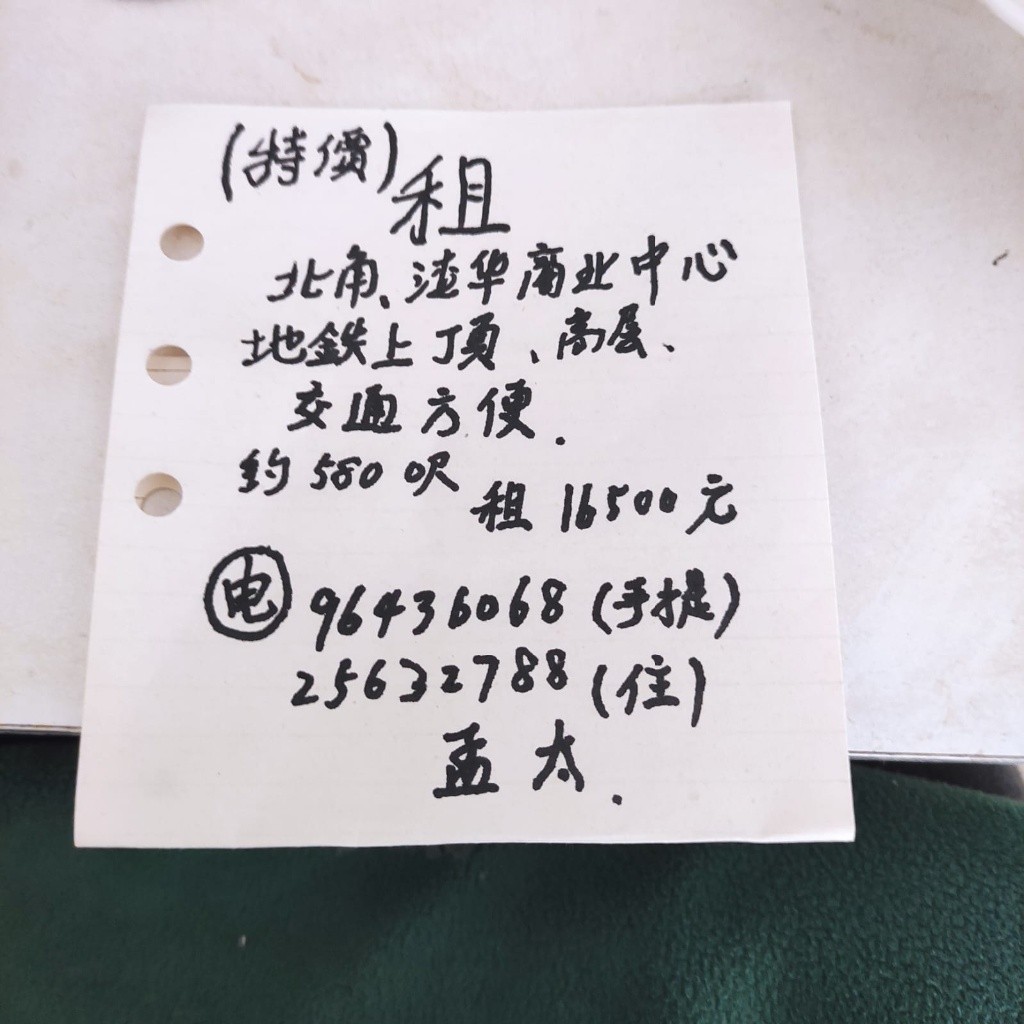 (特價)租
北角、渣华商业中心
地鉄上頂、高层、
交通方便.
約 580 呎
租 16500 元
电 96436068 (手提)
25632788 (住)
孟太.